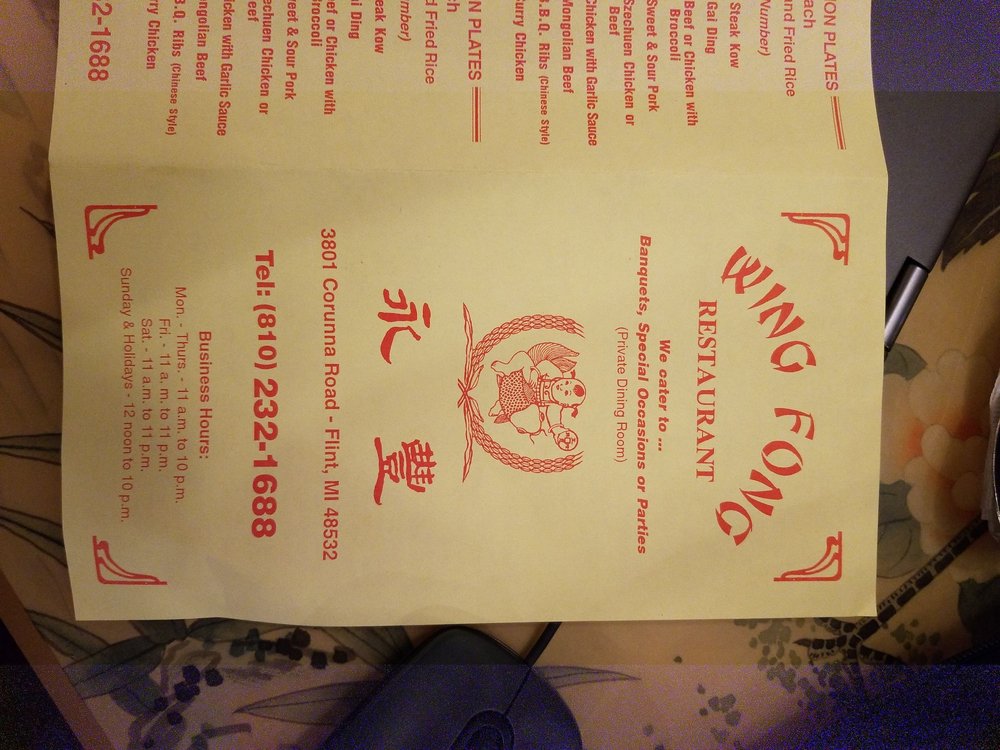 WING FONG
RESTAURANT
We cater to ...
Banquets, Special Occasions or Parties
(Private Dining Room)
永 豐
3801 Corunna Road - Flint, MI 48532
Tel: (810) 232-1688
Business Hours:
Mon. - Thurs. - 11 a.m. to 10 p.m.
Fri. - 11 a. m. to 11 p.m.
Sat. - 11 a.m. to 11 p.m.
Sunday & Holidays - 12 noon to 10 p.m.
ION PLATES
ach
and Fried Rice
Number)
Steak Kow
Gai Ding
Beef or Chicken with
Broccoli
Sweet & Sour Pork
Szechuen Chicken or
Beef
Chicken with Garlic Sauce
Mongolian Beef
B.B.Q. Ribs (Chinese Style)
Curry Chicken
ON PLATES
ch
d Fried Rice
umber)
eak Kow
ai Ding
eef or Chicken with
Broccoli
weet & Sour Pork
zechuen Chicken or
Beef
hicken with Garlic Sauce
ongolian Beef
B.Q. Ribs (Chinese Style)
rry Chicken
2-1688